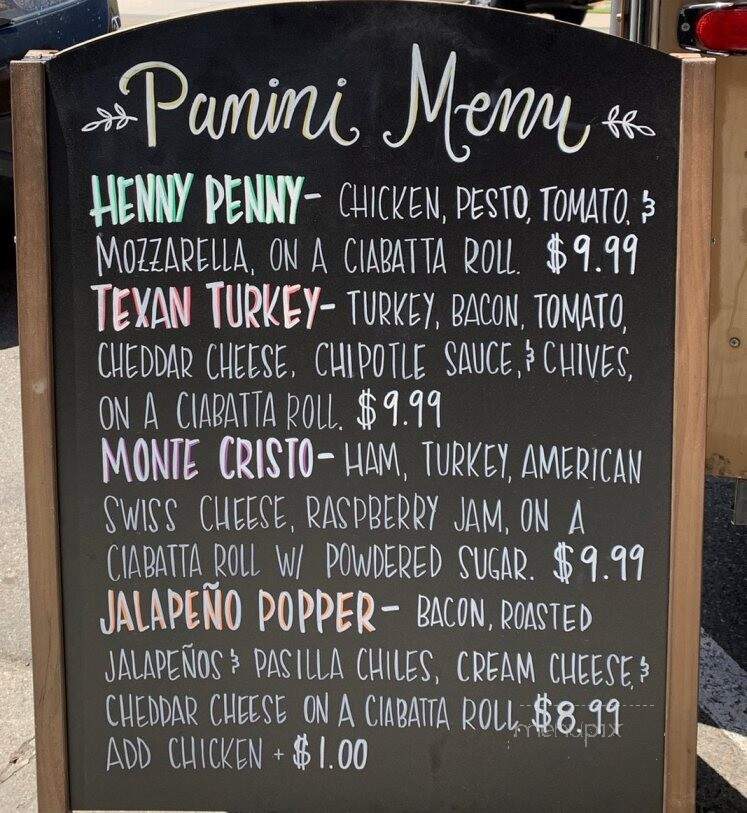 Panini Menu
HENNY PENNY- CHICKEN, PESTO, TOMATO, &
MOZZARELLA, ON A CIABATTA ROLL. $9.99
TEXAN TURKEY- TURKEY, BACON, TOMATO,
CHEDDAR CHEESE, CHIPOTLE SAUCE, & CHIVES,
ON A CIABATTA ROLL. $9.99
MONTE CRISTO- HAM, TURKEY, AMERICAN
SWISS CHEESE, RASPBERRY JAM, ON A
CIABATTA ROLL W/ POWDERED SUGAR. $9.99
JALAPEÑO POPPER- BACON, ROASTED
JALAPEÑOS & PASILLA CHILES, CREAM CHEESE, &
CHEDDAR CHEESE ON A CIABATTA ROLL, $8.99
menupix
ADD CHICKEN + $1.00